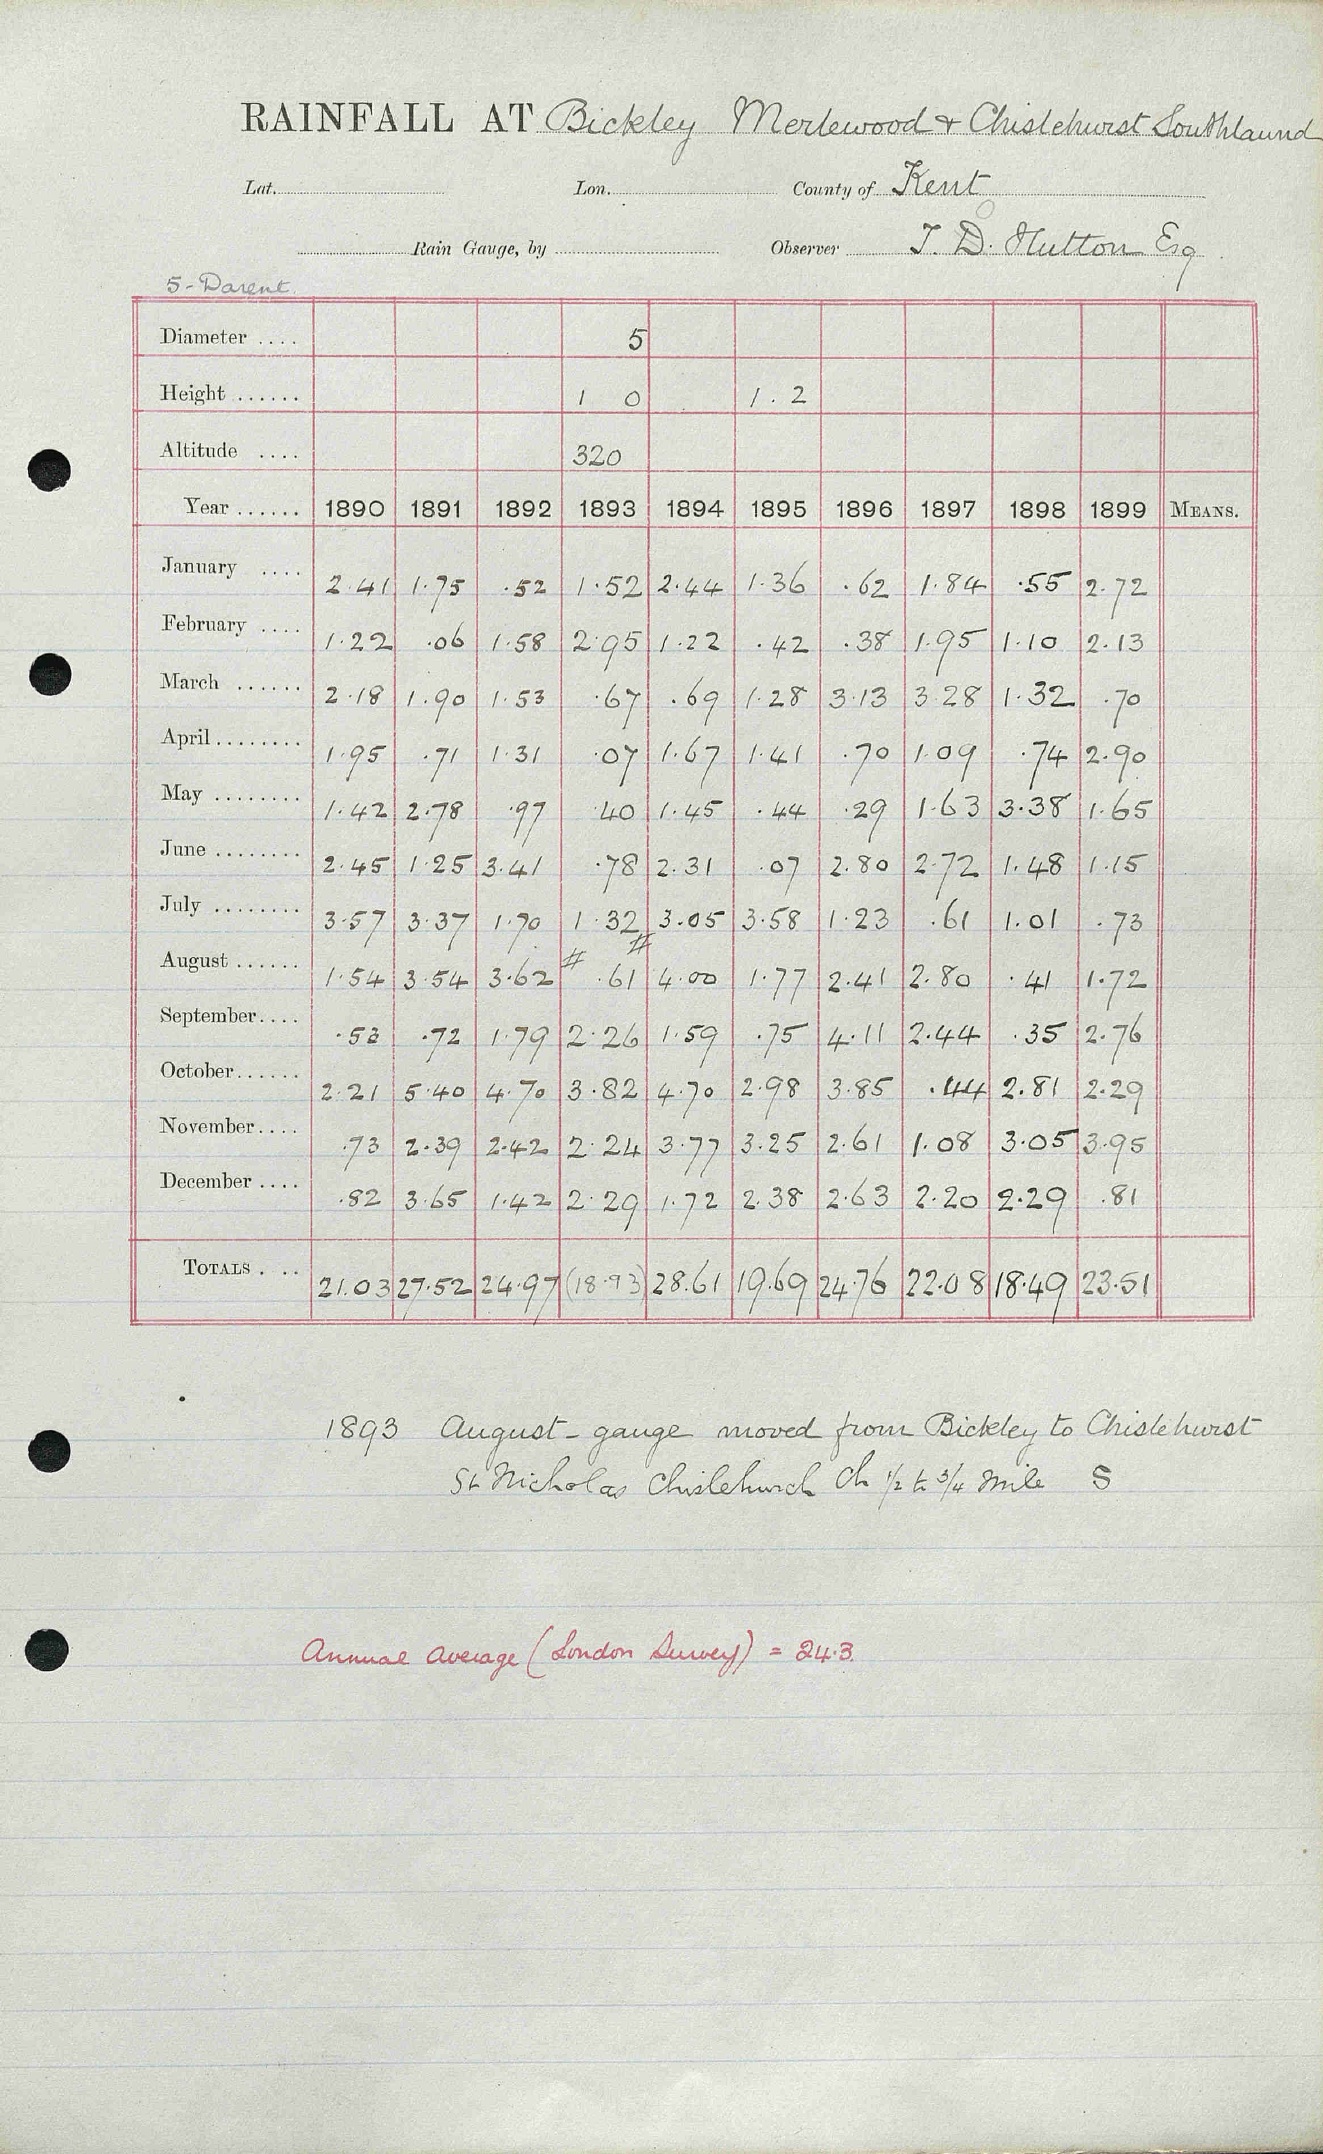 RAINFALL AT Bickley Merlewood & Chislehurst Southlaund
Lat. Lon. County of Kent
Rain Gauge, by Observer T. D. Hutton Esq
5-Darent
Diameter .... 5
Height ...... 1 0 1.2
Altitude .... 320
Year ...... 1890 1891 1892 1893 1894 1895 1896 1897 1898 1899 MEANS.
January .... 2.41 1.75 .52 1.52 2.44 1.36 .62 1.84 .55 2.72
February .... 1.22 .06 1.58 2.95 1.22 .42 .38 1.95 1.10 2.13
March ...... 2.18 1.90 1.53 .67 .69 1.28 3.13 3.28 1.32 .70
April ........ 1.95 .71 1.31 .07 1.67 1.41 .70 1.09 .74 2.90
May ........ 1.42 2.78 .97 .40 1.45 .44 .29 1.63 3.38 1.65
June ........ 2.45 1.25 3.41 .78 2.31 .07 2.80 2.72 1.48 1.15
July ........ 3.57 3.37 1.70 1.32 3.05 3.58 1.23 .61 1.01 .73
August ...... 1.54 3.54 3.62 # .61 # 4.00 1.77 2.41 2.80 .41 1.72
September.... .53 .72 1.79 2.26 1.59 .75 4.11 2.44 .35 2.76
October...... 2.21 5.40 4.70 3.82 4.70 2.98 3.85 .44 2.81 2.29
November.... .73 2.39 2.42 2.24 3.77 3.25 2.61 1.08 3.05 3.95
December .... .82 3.65 1.42 2.29 1.72 2.38 2.63 2.20 2.29 .81
TOTALS . .. 21.03 27.52 24.97 (18.93) 28.61 19.69 24.76 22.08 18.49 23.51
1893 August - gauge moved from Bickley to Chislehurst
St Nicholas Chislehurch Ch 1/2 to 3/4 mile S
Annual average (London Survey) = 24.3.